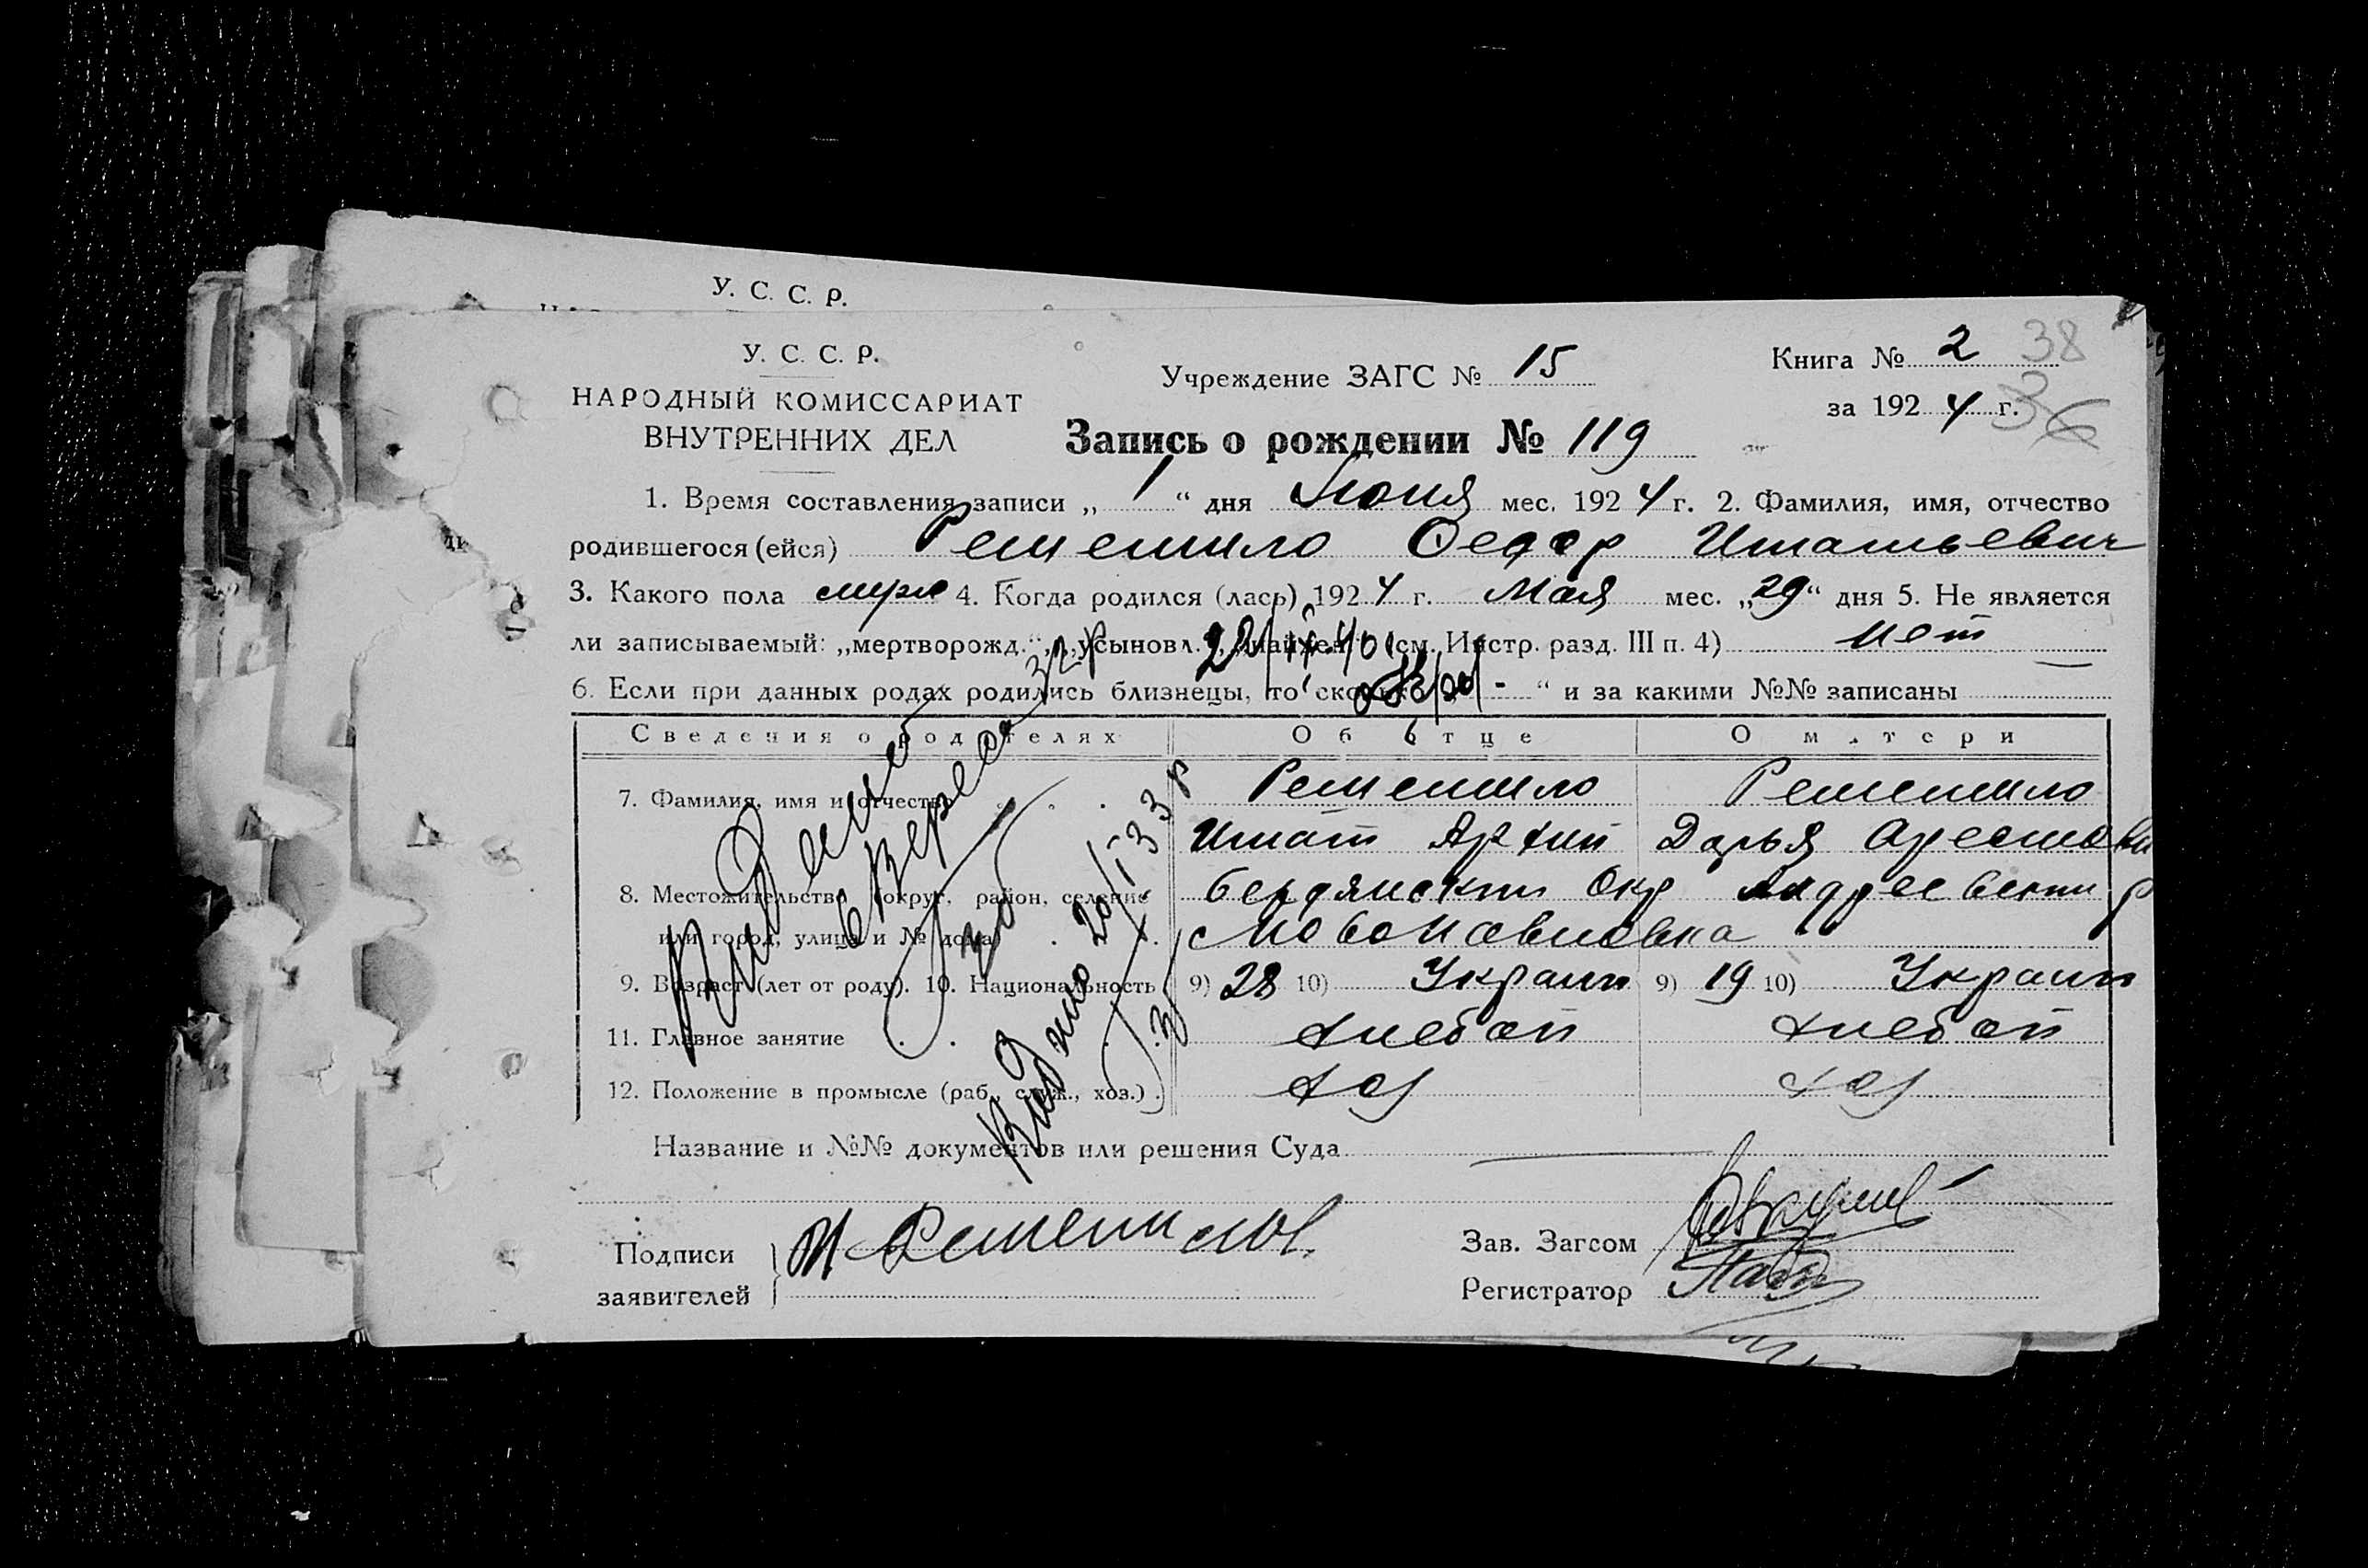 У. С. С. Р.
У. С. С. Р.
НАРОДНЫЙ КОМИССАРИАТ
ВНУТРЕННИХ ДЕЛ
Учреждение ЗАГС № 15
Книга № 2 38
за 1924 г. 36
Запись о рождении № 119
1. Время составления записи „ 1 “ дня Июня мес. 1924 г. 2. Фамилия, имя, отчество
родившегося (ейся) Решетило Федор Игнатьевич
3. Какого пола муж 4. Когда родился (лась) 1924 г. Мая мес. „29“ дня 5. Не является
ли записываемый: „мертворожд.“, „усыновл.“, „найден.“ (см. Инстр. разд. III п. 4) нет
6. Если при данных родах родились близнецы, то сколько „ - “ и за какими №№ записаны
Сведения о родителях Об отце О матери
7. Фамилия, имя и отчество Решетило Решетило
Игнат Архип Дарья
8. Местожительство (округ, район, селение Бердянский Окр Андреевский р
или город, улица и № дома) с Новопавловка
9. Возраст (лет от роду). 10. Национальность 9) 28 10) Украин 9) 19 10) Украин
11. Главное занятие хлебоп хлебоп
12. Положение в промысле (раб., служ., хоз.) хоз хоз
Название и №№ документов или решения Суда
Подписи
заявителей
Зав. Загсом
Регистратор